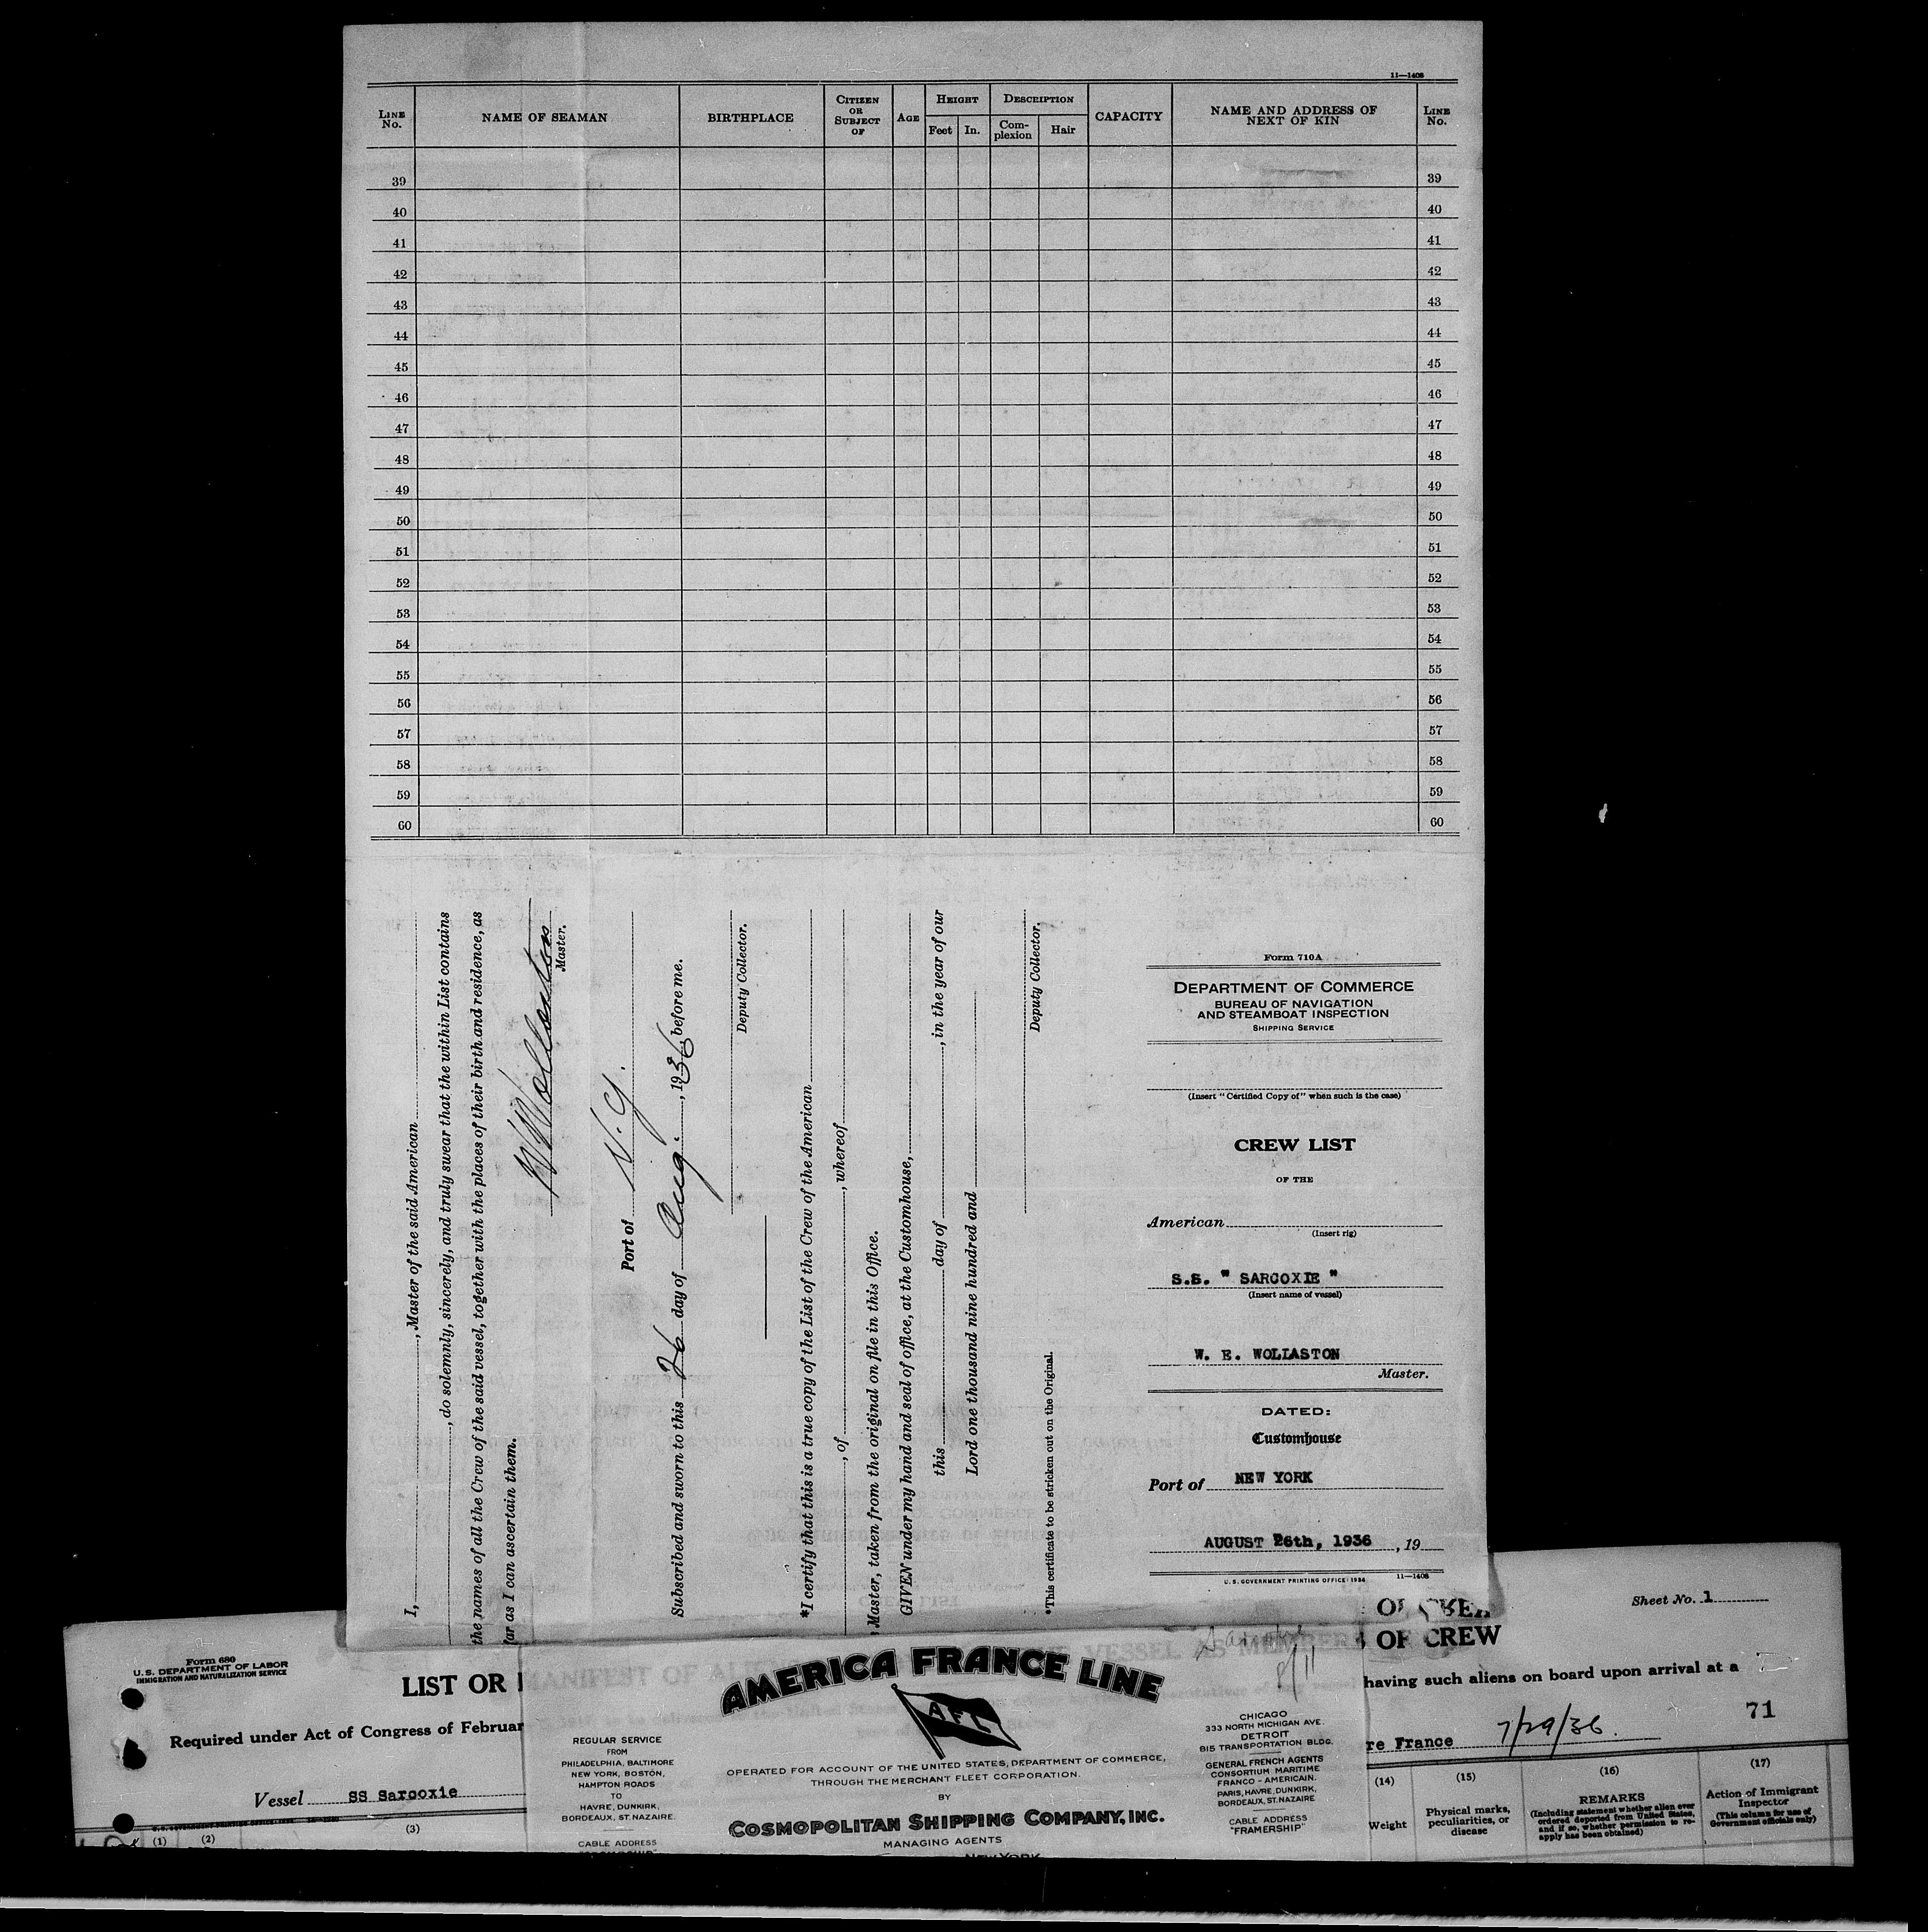 11—1408
LINE No. NAME OF SEAMAN BIRTHPLACE CITIZEN OR SUBJECT OF AGE HEIGHT Feet In. DESCRIPTION Com-plexion Hair CAPACITY NAME AND ADDRESS OF NEXT OF KIN LINE No.
39 39
40 40
41 41
42 42
43 43
44 44
45 45
46 46
47 47
48 48
49 49
50 50
51 51
52 52
53 53
54 54
55 55
56 56
57 57
58 58
59 59
60 60
I, , Master of the said American
, do solemnly, sincerely, and truly swear that the within List contains
the names of all the Crew of the said vessel, together with the places of their birth and residence, as
far as I can ascertain them.
W Wollaston
Master.
Port of N. Y.
Subscribed and sworn to this 26 day of Aug. , 1936 before me.
Deputy Collector.
*I certify that this is a true copy of the List of the Crew of the American
, of , whereof
Master, taken from the original on file in this Office.
GIVEN under my hand and seal of office, at the Customhouse,
this day of , in the year of our
Lord one thousand nine hundred and
Deputy Collector.
*This certificate to be stricken out on the Original.
Form 710A
DEPARTMENT OF COMMERCE
BUREAU OF NAVIGATION
AND STEAMBOAT INSPECTION
SHIPPING SERVICE
(Insert "Certified Copy of" when such is the case)
CREW LIST
OF THE
American
(Insert rig)
S.S. " SARCOXIE "
(Insert name of vessel)
W. E. WOLLASTON
Master.
DATED:
Customhouse
Port of NEW YORK
AUGUST 26th, 1936 , 19
U.S. GOVERNMENT PRINTING OFFICE: 1934 11—1408
Form 680
U. S. DEPARTMENT OF LABOR
IMMIGRATION AND NATURALIZATION SERVICE
LIST OR
Required under Act of Congress of Februar
Vessel SS Sarcoxie
(1) (2) (3)
AMERICA FRANCE LINE
AFL
REGULAR SERVICE
FROM
PHILADELPHIA, BALTIMORE
NEW YORK, BOSTON,
HAMPTON ROADS
TO
HAVRE, DUNKIRK,
BORDEAUX, ST. NAZAIRE
CABLE ADDRESS
OPERATED FOR ACCOUNT OF THE UNITED STATES, DEPARTMENT OF COMMERCE,
THROUGH THE MERCHANT FLEET CORPORATION.
BY
COSMOPOLITAN SHIPPING COMPANY, INC.
MANAGING AGENTS
NEW YORK
CHICAGO
333 NORTH MICHIGAN AVE.
DETROIT
815 TRANSPORTATION BLDG.
GENERAL FRENCH AGENTS
CONSORTIUM MARITIME
FRANCO - AMERICAIN.
PARIS, HAVRE, DUNKIRK,
BORDEAUX, ST. NAZAIRE
CABLE ADDRESS
"FRAMERSHIP"
Sheet No. 1
OF CREW
having such aliens on board upon arrival at a
re France 7/29/36.
71
(14) (15) (16) (17)
Weight
Physical marks, peculiarities, or disease
REMARKS
(Including statement whether alien ever ordered deported from United States, and if so, whether permission to re-apply has been obtained)
Action of Immigrant Inspector
(This column for use of Government officials only)